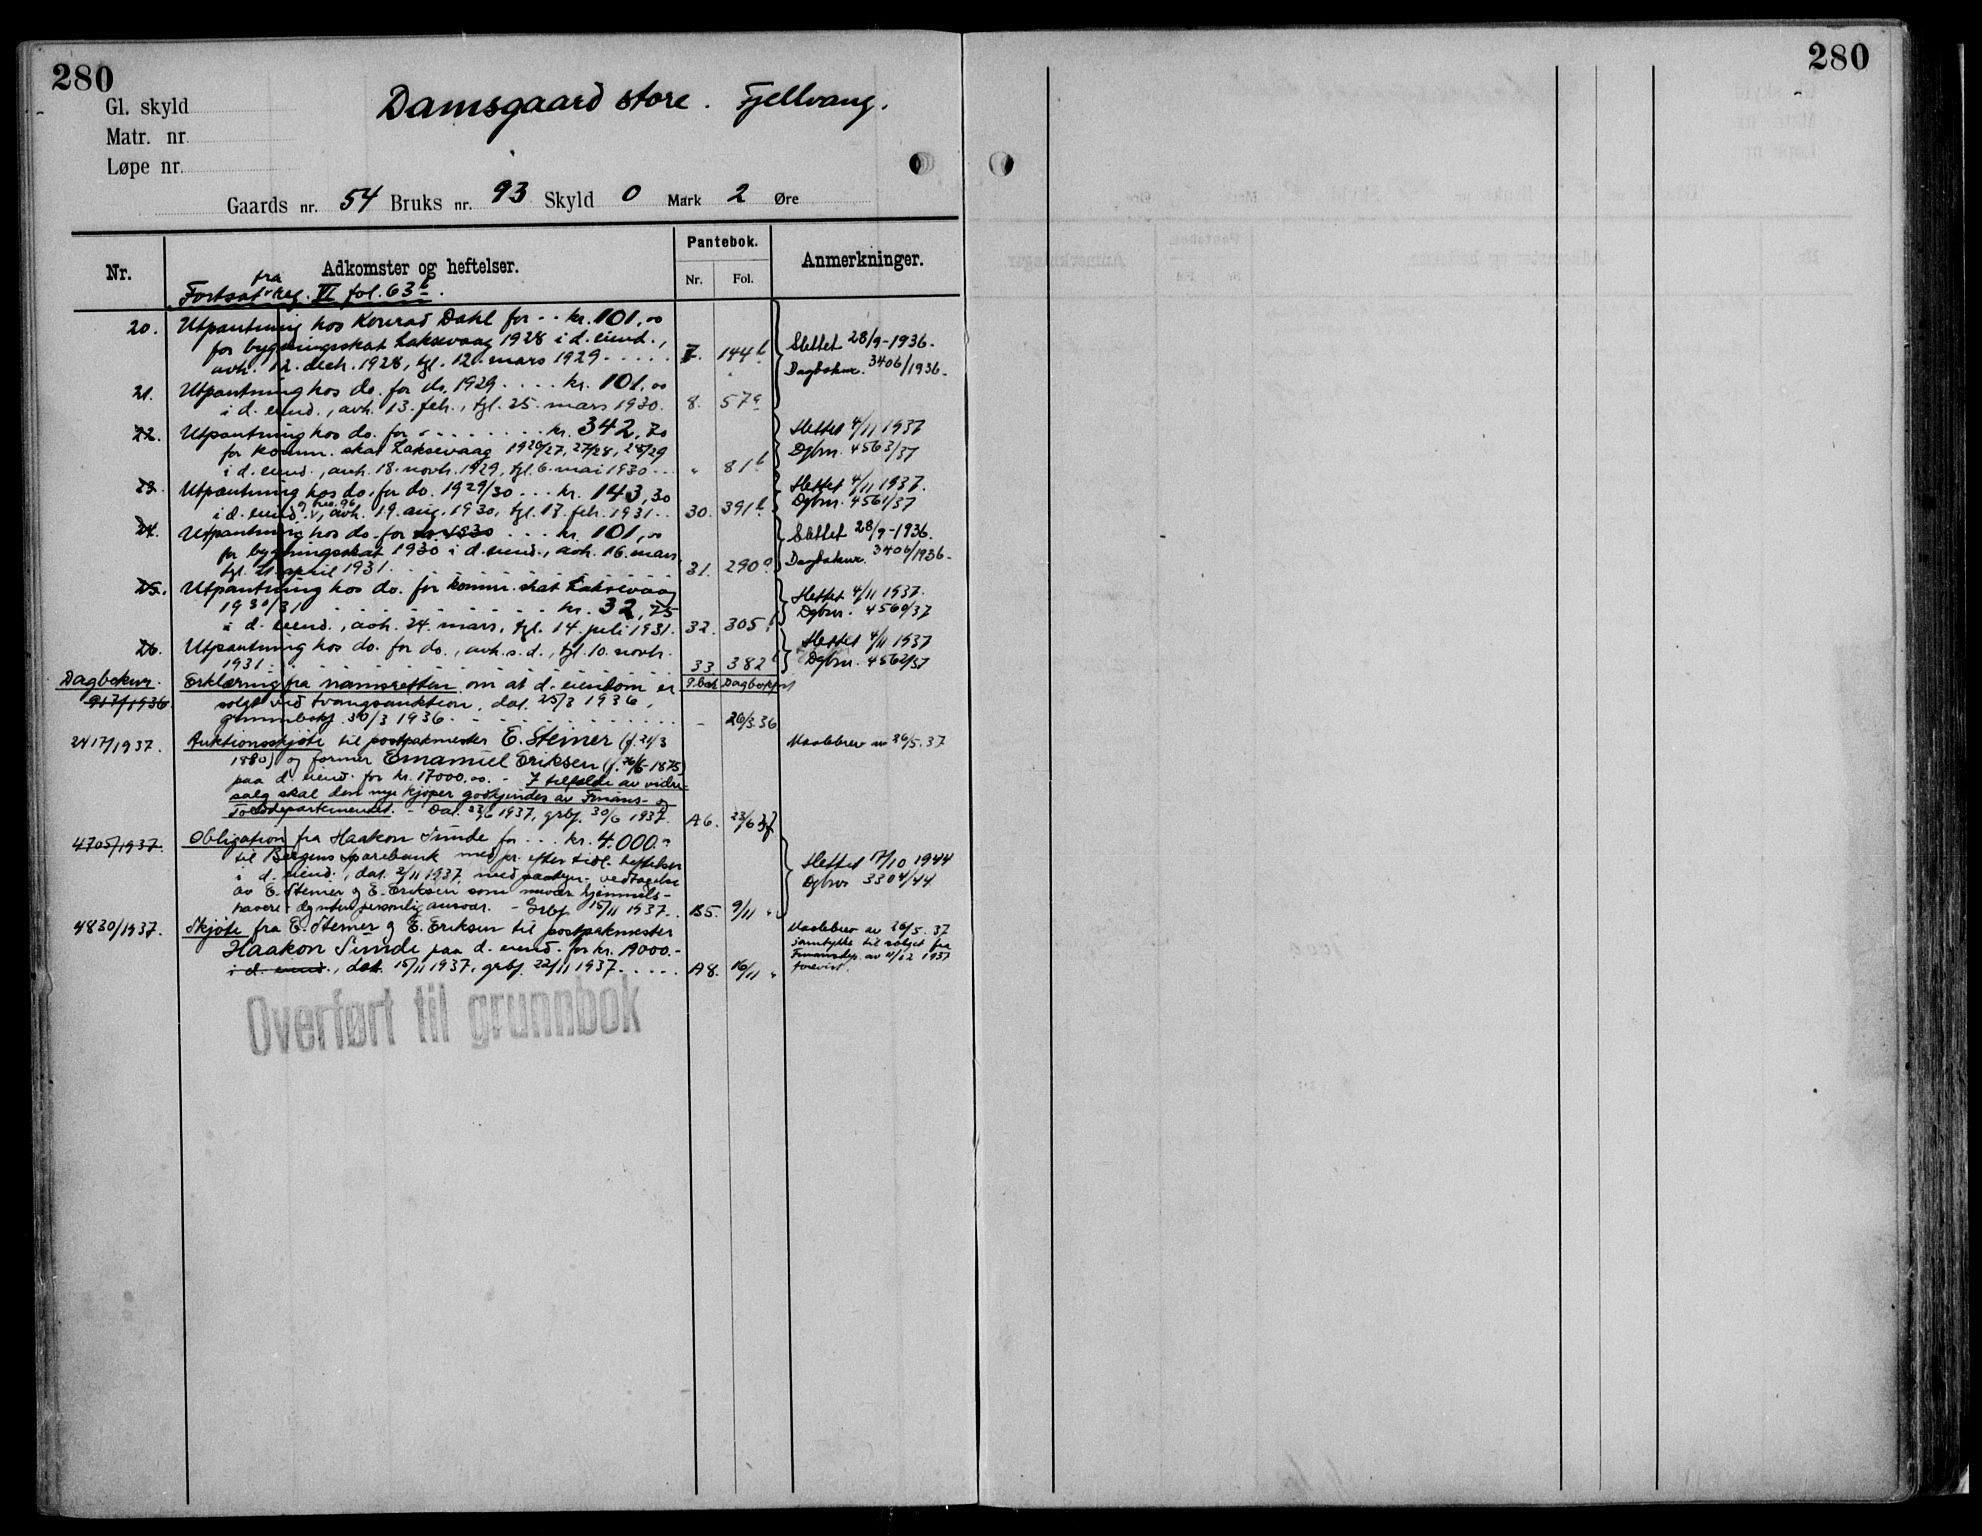 280
280
Gl. skyld
Matr. nr.
Løpe nr.
Damsgaard store. Fjellvang.
Gaards nr. 54 Bruks nr. 93 Skyld 0 Mark 2 Øre
Nr.
Adkomster og heftelser.
Pantebok.
Nr.
Fol.
Anmerkninger.
Fortsat fra reg. VI fol. 63b.
20. Utpantning hos Konrad Dahl for .. kr. 101,00
for bygningsskat Laksevaag 1928 i d. eiend.,
avh. 12. decb. 1928, tgl. 12. mars 1929 ..... 7. 144b
Slettet 28/9-1936.
Dagboknr. 3406/1936.
21. Utpantning hos do. for do. 1929 .... kr. 101,00
i d. eiend., avh. 13. feb., tgl. 25. mars 1930. 8. 57a
22. Utpantning hos do. for ........ kr. 342,70
for komm. skat Laksevaag 1926/27, 27/28, 28/29
i d. eiend., avh. 18. novb. 1929, tgl. 6. mai 1930 ... " 81b
Slettet 4/11 1937
Dgbnr. 4563/37
23. Utpantning hos do. for do. 1929/30 ... kr. 143,30
i d. eiend. avh. 19. aug. 1930, tgl. 17. feb. 1931 .. 30. 391b
Slettet 4/11 1937.
Dgbnr. 4561/37
24. Utpantning hos do. for do. 1930 ... kr. 101,00
for bygningsskat 1930 i d. eiend., avh. 16. mars
tgl. 21. april 1931. 31. 290a
Slettet 28/9-1936.
Dagboknr. 3406/1936.
25. Utpantning hos do. for komm. skat Laksevaag
1930/31 ........ kr. 32,75
i d. eiend., avh. 24. mars, tgl. 14. juli 1931. 32. 305
Slettet 4/11 1937.
Dgbnr. 4560/37
26. Utpantning hos do. for do., avh. s. d., tgl. 10. novb.
1931. 33 382b
Slettet 4/11 1937
Dgbnr. 4562/37
Dagboknr.
917/1936
P.bok Dagbokført
Erklæring fra namsretten om at d. eiendom er
solgt ved tvangsauktion, dat. 25/3 1936,
grunnbokf. 30/3 1936. - 26/3.36
2417/1937. Auktionsskjøte til postpakmester E. Steiner (f. 24/3
1880) og former Emanuel Eriksen (f. 26/5-1875)
paa d. eiend. for kr. 17000.00. - I tilfelde av videre-
salg skal den nye kjøper godkjendes av Finans- og
Tolldepartementet. - Dat. 23/6 1937, grbf. 30/6 1937. A6. 23/6 37
Maalebrev av 26/5.37
4705/1937. Obligation fra Haakon Sunde for ... kr. 4.000.-
til Bergens Sparebank med pr. efter tidl. heftelser
i d. eiend., dat. 2/11 1937, med paategn. vedtagelse
av E. Steiner og E. Eriksen som nuvær. hjemmels-
havere uten personlig ansvar. - Grbf. 15/11 1937. B5. 9/11 "
Slettet 17/10 1944
Dgbnr 3304/44
4830/1937. Skjøte fra E. Steiner og E. Eriksen til postpakmester
Haakon Sunde paa d. eiend. for kr. 19000.-
i d. eiend., dat. 15/11 1937, grbf. 22/11 1937 ..... A8. 16/11 "
Maalebrev av 26/5.37
samtykke til salget fra
Finansdep. av 1937
forevist.
Overført til grunnbok